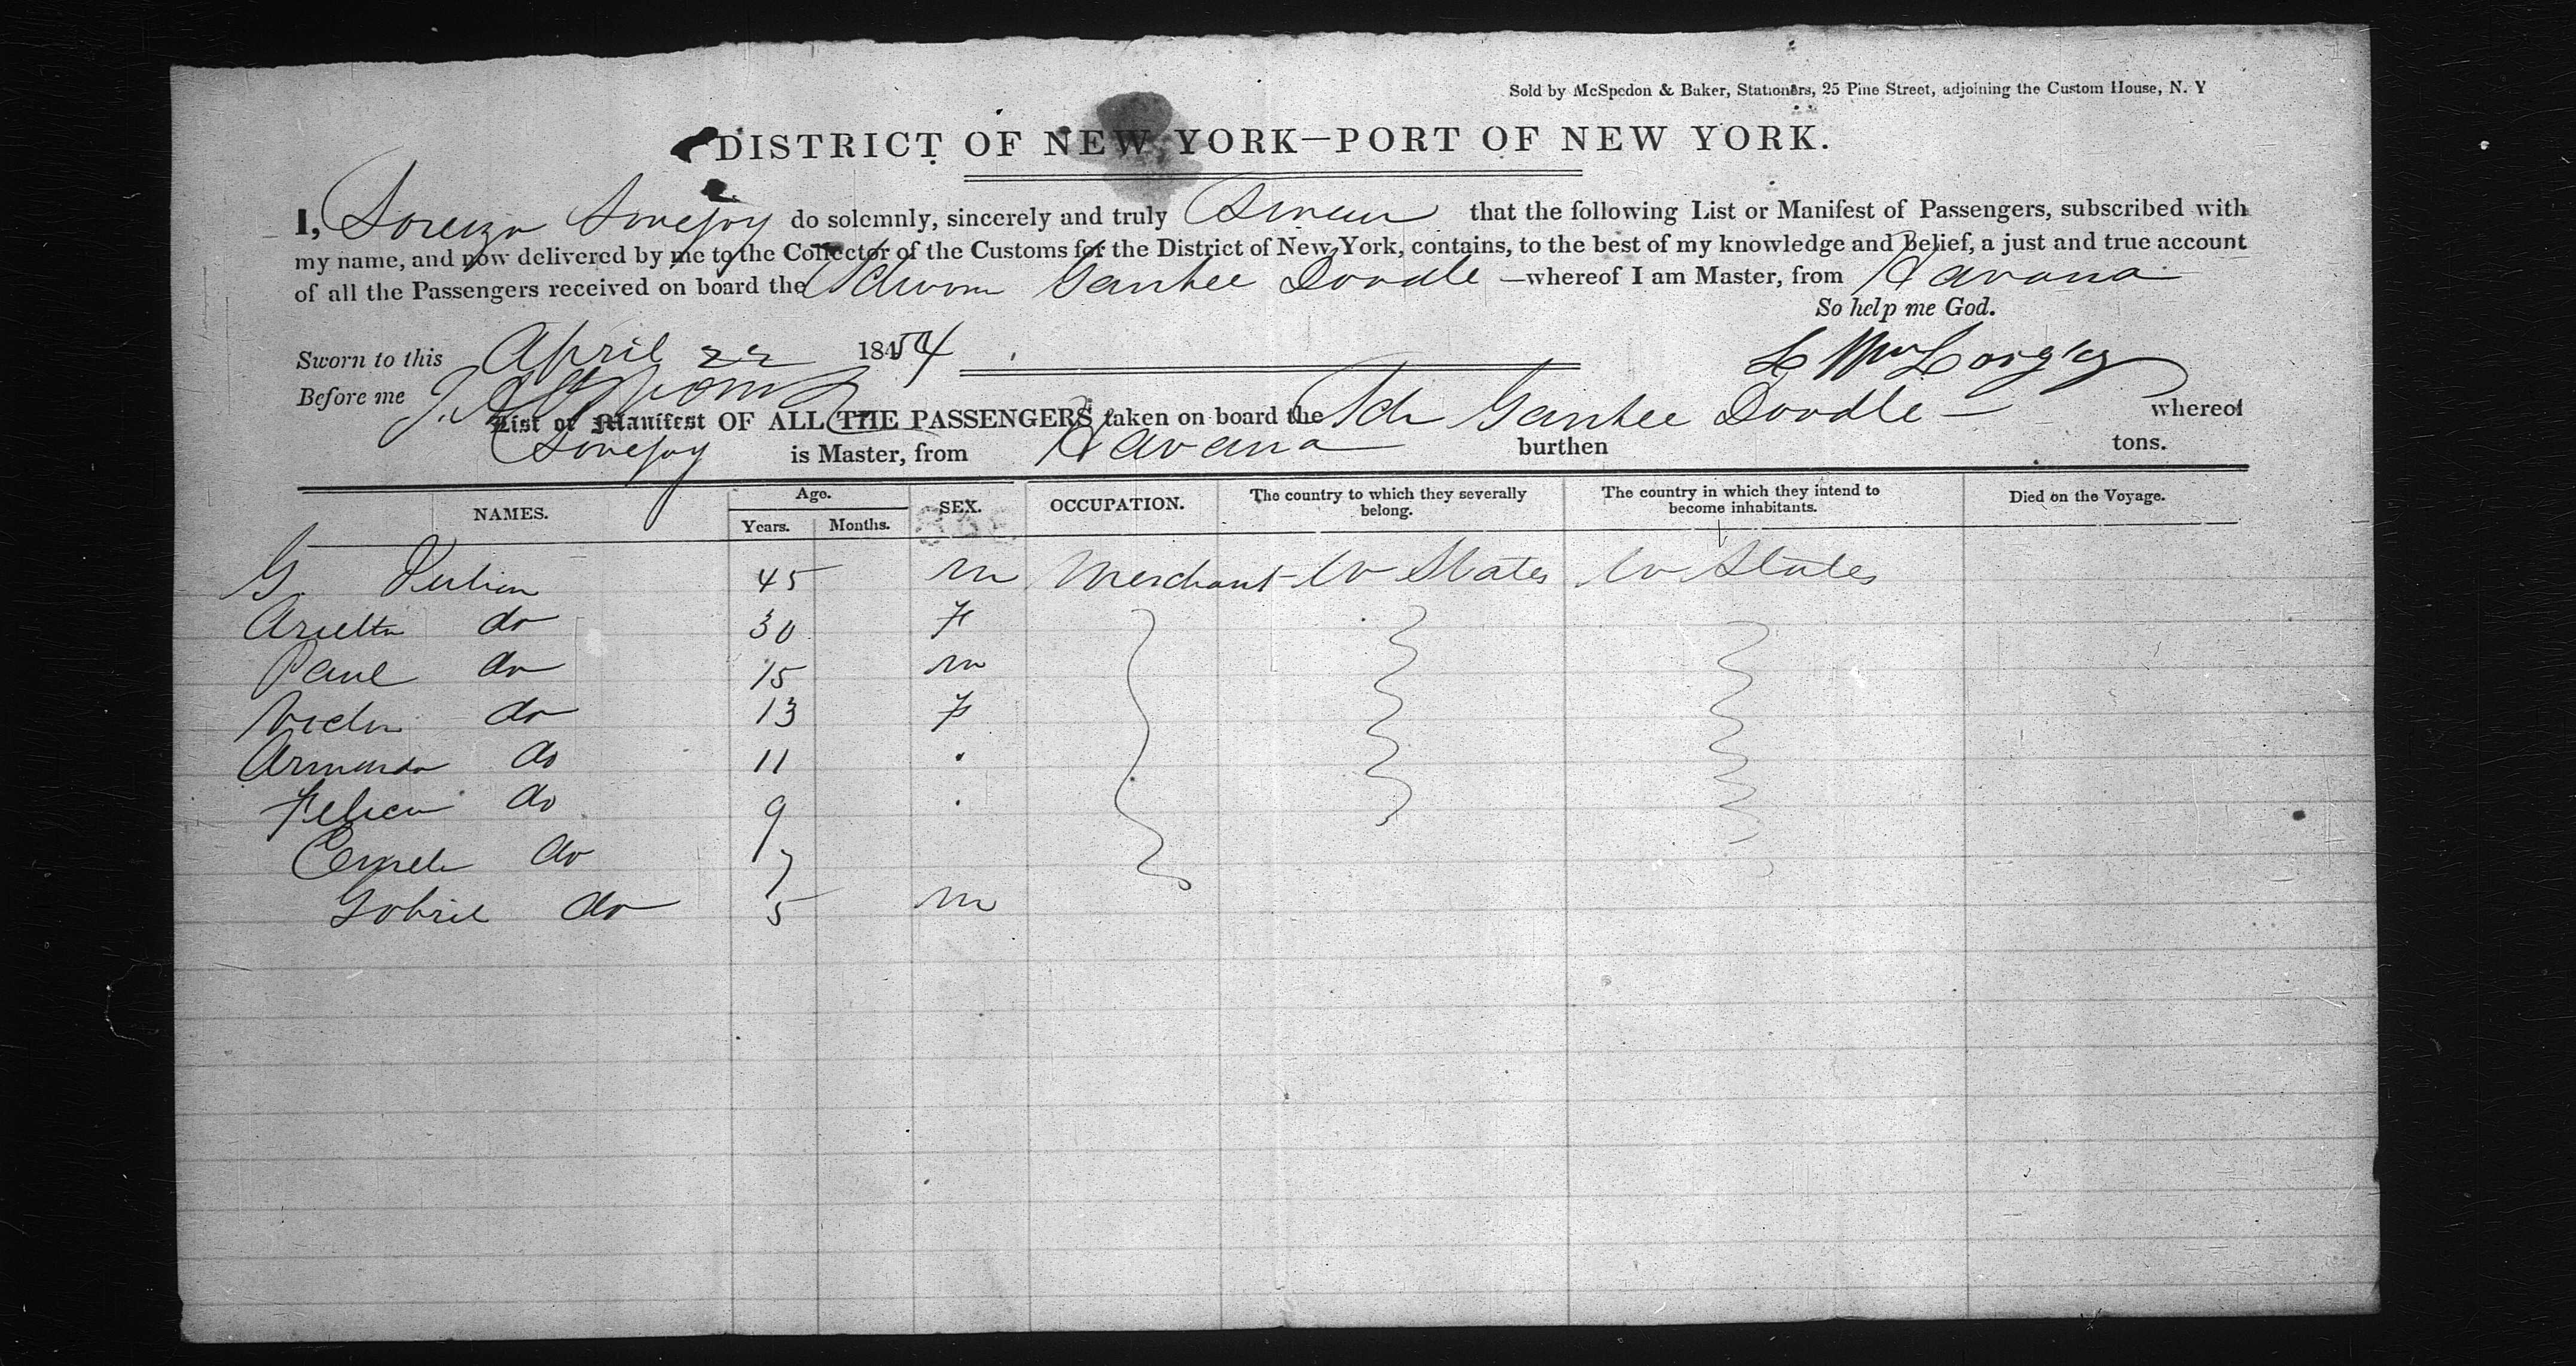 Sold by McSpedon & Baker, Stationers, 25 Pine Street, adjoining the Custom House, N. Y
DISTRICT OF NEW YORK—PORT OF NEW YORK.
I, Lorenzo Lovejoy do solemnly, sincerely and truly Swear that the following List or Manifest of Passengers, subscribed with
my name, and now delivered by me to the Collector of the Customs for the District of New York, contains, to the best of my knowledge and belief, a just and true account
of all the Passengers received on board the Schoon Yankee Doodle —whereof I am Master, from Havana
So help me God.
Sworn to this April 22 1854
Before me
List or Manifest OF ALL THE PASSENGERS taken on board the Sch Yankee Doodle — whereof
Lovejoy is Master, from Havana burthen tons.
NAMES. Age. Years. Months. SEX. OCCUPATION. The country to which they severally belong. The country in which they intend to become inhabitants. Died on the Voyage.
G. 45 m Merchant U States U States
do 30 F
Paul do 15 m
do 13 F
do 11
do 9
do 7
Gabriel do 5 m